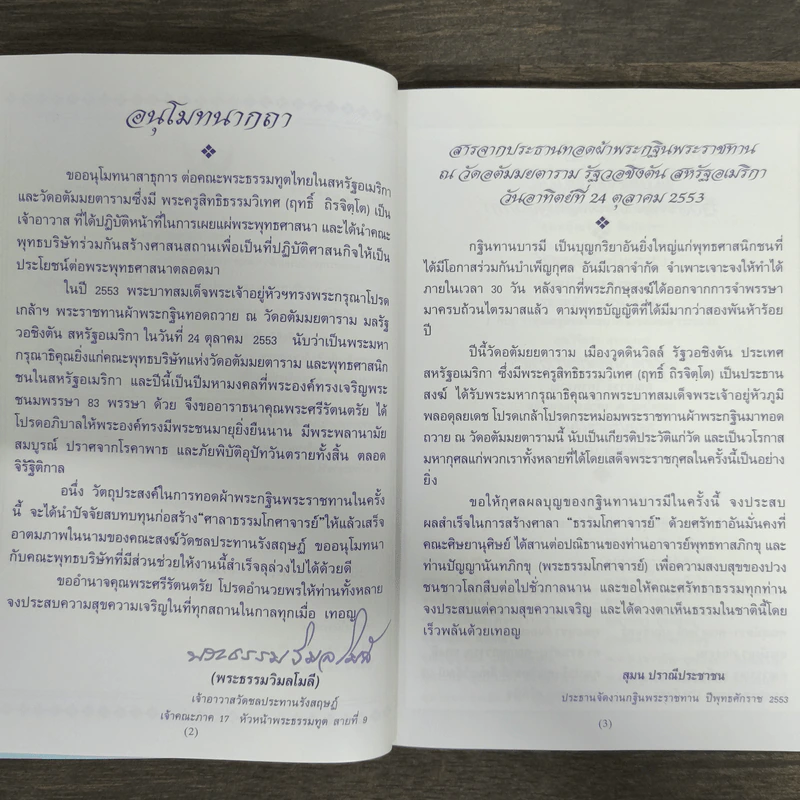 อนุโมทนากถา
ขออนุโมทนาสาธุการ ต่อคณะพระธรรมทูตไทยในสหรัฐอเมริกา
และวัดอตัมมยตารามซึ่งมี พระครูสิทธิธรรมวิเทศ (ฤทธิ์ ถิรจิตฺโต) เป็น
เจ้าอาวาส ที่ได้ปฏิบัติหน้าที่ในการเผยแผ่พระพุทธศาสนา และได้นำคณะ
พุทธบริษัทร่วมกันสร้างศาสนสถานเพื่อเป็นที่ปฏิบัติศาสนกิจให้เป็น
ประโยชน์ต่อพระพุทธศาสนาตลอดมา
ในปี 2553 พระบาทสมเด็จพระเจ้าอยู่หัวฯทรงพระกรุณาโปรด
เกล้าฯ พระราชทานผ้าพระกฐินทอดถวาย ณ วัดอตัมมยตาราม มลรัฐ
วอชิงตัน สหรัฐอเมริกา ในวันที่ 24 ตุลาคม 2553 นับว่าเป็นพระมหา
กรุณาธิคุณยิ่งแก่คณะพุทธบริษัทแห่งวัดอตัมมยตาราม และพุทธศาสนิก
ชนในสหรัฐอเมริกา และปีนี้เป็นปีมหามงคลที่พระองค์ทรงเจริญพระ
ชนมพรรษา 83 พรรษา ด้วย จึงขออาราธนาคุณพระศรีรัตนตรัย ได้
โปรดอภิบาลให้พระองค์ทรงมีพระชนมายุยิ่งยืนนาน มีพระพลานามัย
สมบูรณ์ ปราศจากโรคาพาธ และภัยพิบัติอุปัทวันตรายทั้งสิ้น ตลอด
จิรัฐิติกาล
อนึ่ง วัตถุประสงค์ในการทอดผ้าพระกฐินพระราชทานในครั้ง
นี้ จะได้นำปัจจัยสบทบทุนก่อสร้าง"ศาลาธรรมโกศาจารย์"ให้แล้วเสร็จ
อาตมภาพในนามของคณะสงฆ์วัดชลประทานรังสฤษฎ์ ขออนุโมทนา
กับคณะพุทธบริษัทที่มีส่วนช่วยให้งานนี้สำเร็จลุล่วงไปได้ด้วยดี
ขออำนาจคุณพระศรีรัตนตรัย โปรดอำนวยพรให้ท่านทั้งหลาย
จงประสบความสุขความเจริญในที่ทุกสถานในกาลทุกเมื่อ เทอญ
พระธรรมวิมลโมลี
(พระธรรมวิมลโมลี)
เจ้าอาวาสวัดชลประทานรังสฤษฎ์
เจ้าคณะภาค 17 หัวหน้าพระธรรมทูต สายที่ 9
(2)
สารจากประธานทอดผ้าพระกฐินพระราชทาน
ณ วัดอตัมมยตาราม รัฐวอชิงตัน สหรัฐอเมริกา
วันอาทิตย์ที่ 24 ตุลาคม 2553
กฐินทานบารมี เป็นบุญกริยาอันยิ่งใหญ่แก่พุทธศาสนิกชนที่
ได้มีโอกาสร่วมกันบำเพ็ญกุศล อันมีเวลาจำกัด จำเพาะเจาะจงให้ทำได้
ภายในเวลา 30 วัน หลังจากที่พระภิกษุสงฆ์ได้ออกจากการจำพรรษา
มาครบถ้วนไตรมาสแล้ว ตามพุทธบัญญัติที่ได้มีมากว่าสองพันห้าร้อย
ปี
ปีนี้วัดอตัมยยตาราม เมืองวูดดินวิลล์ รัฐวอชิงตัน ประเทศ
สหรัฐอเมริกา ซึ่งมีพระครูสิทธิธรรมวิเทศ (ฤทธิ์ ถิรจิตฺโต) เป็นประธาน
สงฆ์ ได้รับพระมหากรุณาธิคุณจากพระบาทสมเด็จพระเจ้าอยู่หัวภูมิ
พลอดุลยเดช โปรดเกล้าโปรดกระหม่อมพระราชทานผ้าพระกฐินมาทอด
ถวาย ณ วัดอตัมมยตารามนี้ นับเป็นเกียรติประวัติแก่วัด และเป็นวโรกาส
มหากุศลแก่พวกเราทั้งหลายที่ได้โดยเสด็จพระราชกุศลในครั้งนี้เป็นอย่าง
ยิ่ง
ขอให้กุศลผลบุญของกฐินทานบารมีในครั้งนี้ จงประสบ
ผลสำเร็จในการสร้างศาลา "ธรรมโกศาจารย์" ด้วยศรัทธาอันมั่นคงที่
คณะศิษยานุศิษย์ ได้สานต่อปณิธานของท่านอาจารย์พุทธทาสภิกขุ และ
ท่านปัญญานันทภิกขุ (พระธรรมโกศาจารย์) เพื่อความสงบสุขของปวง
ชนชาวโลกสืบต่อไปชั่วกาลนาน และขอให้คณะศรัทธาธรรมทุกท่าน
จงประสบแต่ความสุขความเจริญ และได้ดวงตาเห็นธรรมในชาตินี้โดย
เร็วพลันด้วยเทอญ
สุมน ปราณีประชาชน
ประธานจัดงานกฐินพระราชทาน ปีพุทธศักราช 2553
(3)